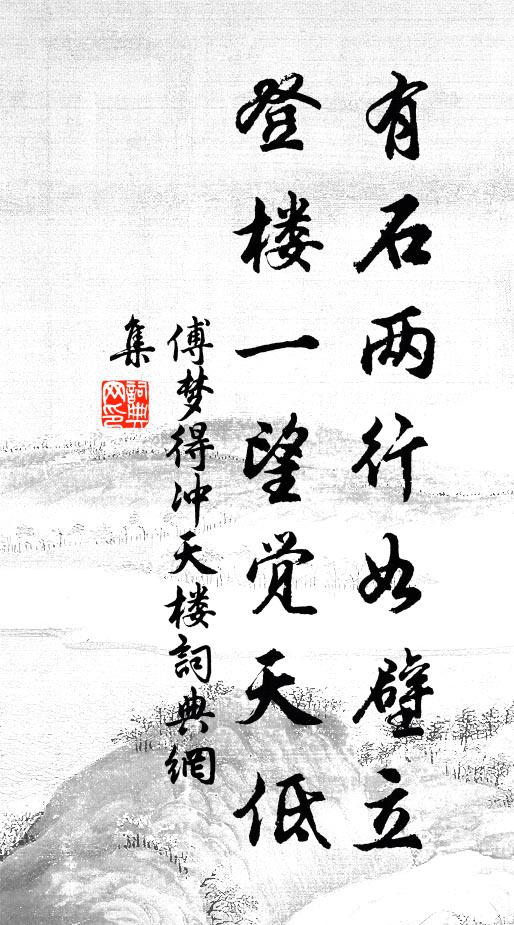 有石两行如壁立
登楼一望觉天低
傅梦得冲天楼詞典網
集
詞典網印